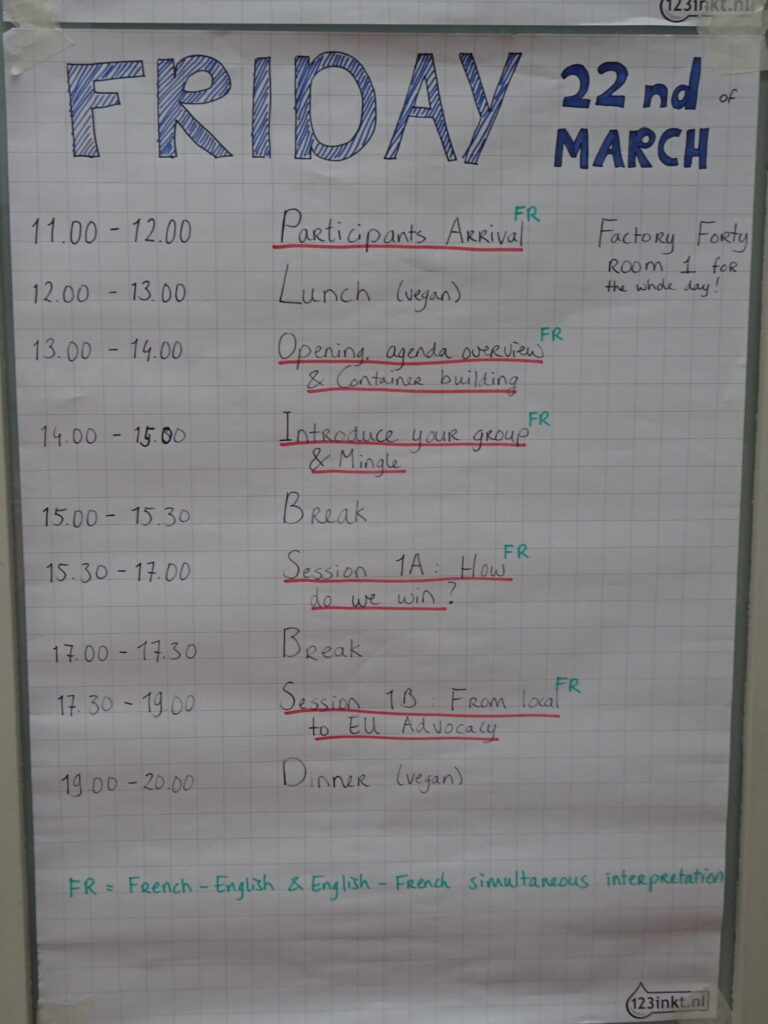 123inkt.nl
FRIDAY 22nd of
MARCH
11.00 - 12.00 Participants Arrival FR Factory Forty
Room 1 for
the whole day!
12.00 - 13.00 Lunch (vegan)
13.00 - 14.00 Opening, agenda overview FR
& Container building
14.00 - 15.00 Introduce your group FR
& Mingle
15.00 - 15.30 Break
15.30 - 17.00 Session 1A : How FR
do we win?
17.00 - 17.30 Break
17.30 - 19.00 Session 1B : From local FR
to EU Advocacy
19.00 - 20.00 Dinner (vegan)
FR = French - English & English - French simultaneous interpretation
123inkt.nl